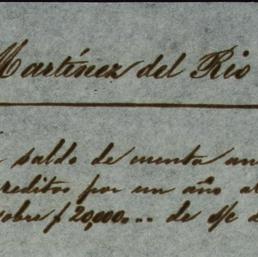 Martinez del Rio
saldo de cuenta an
reditos por un año a
sobre $ 20,000... de s/c